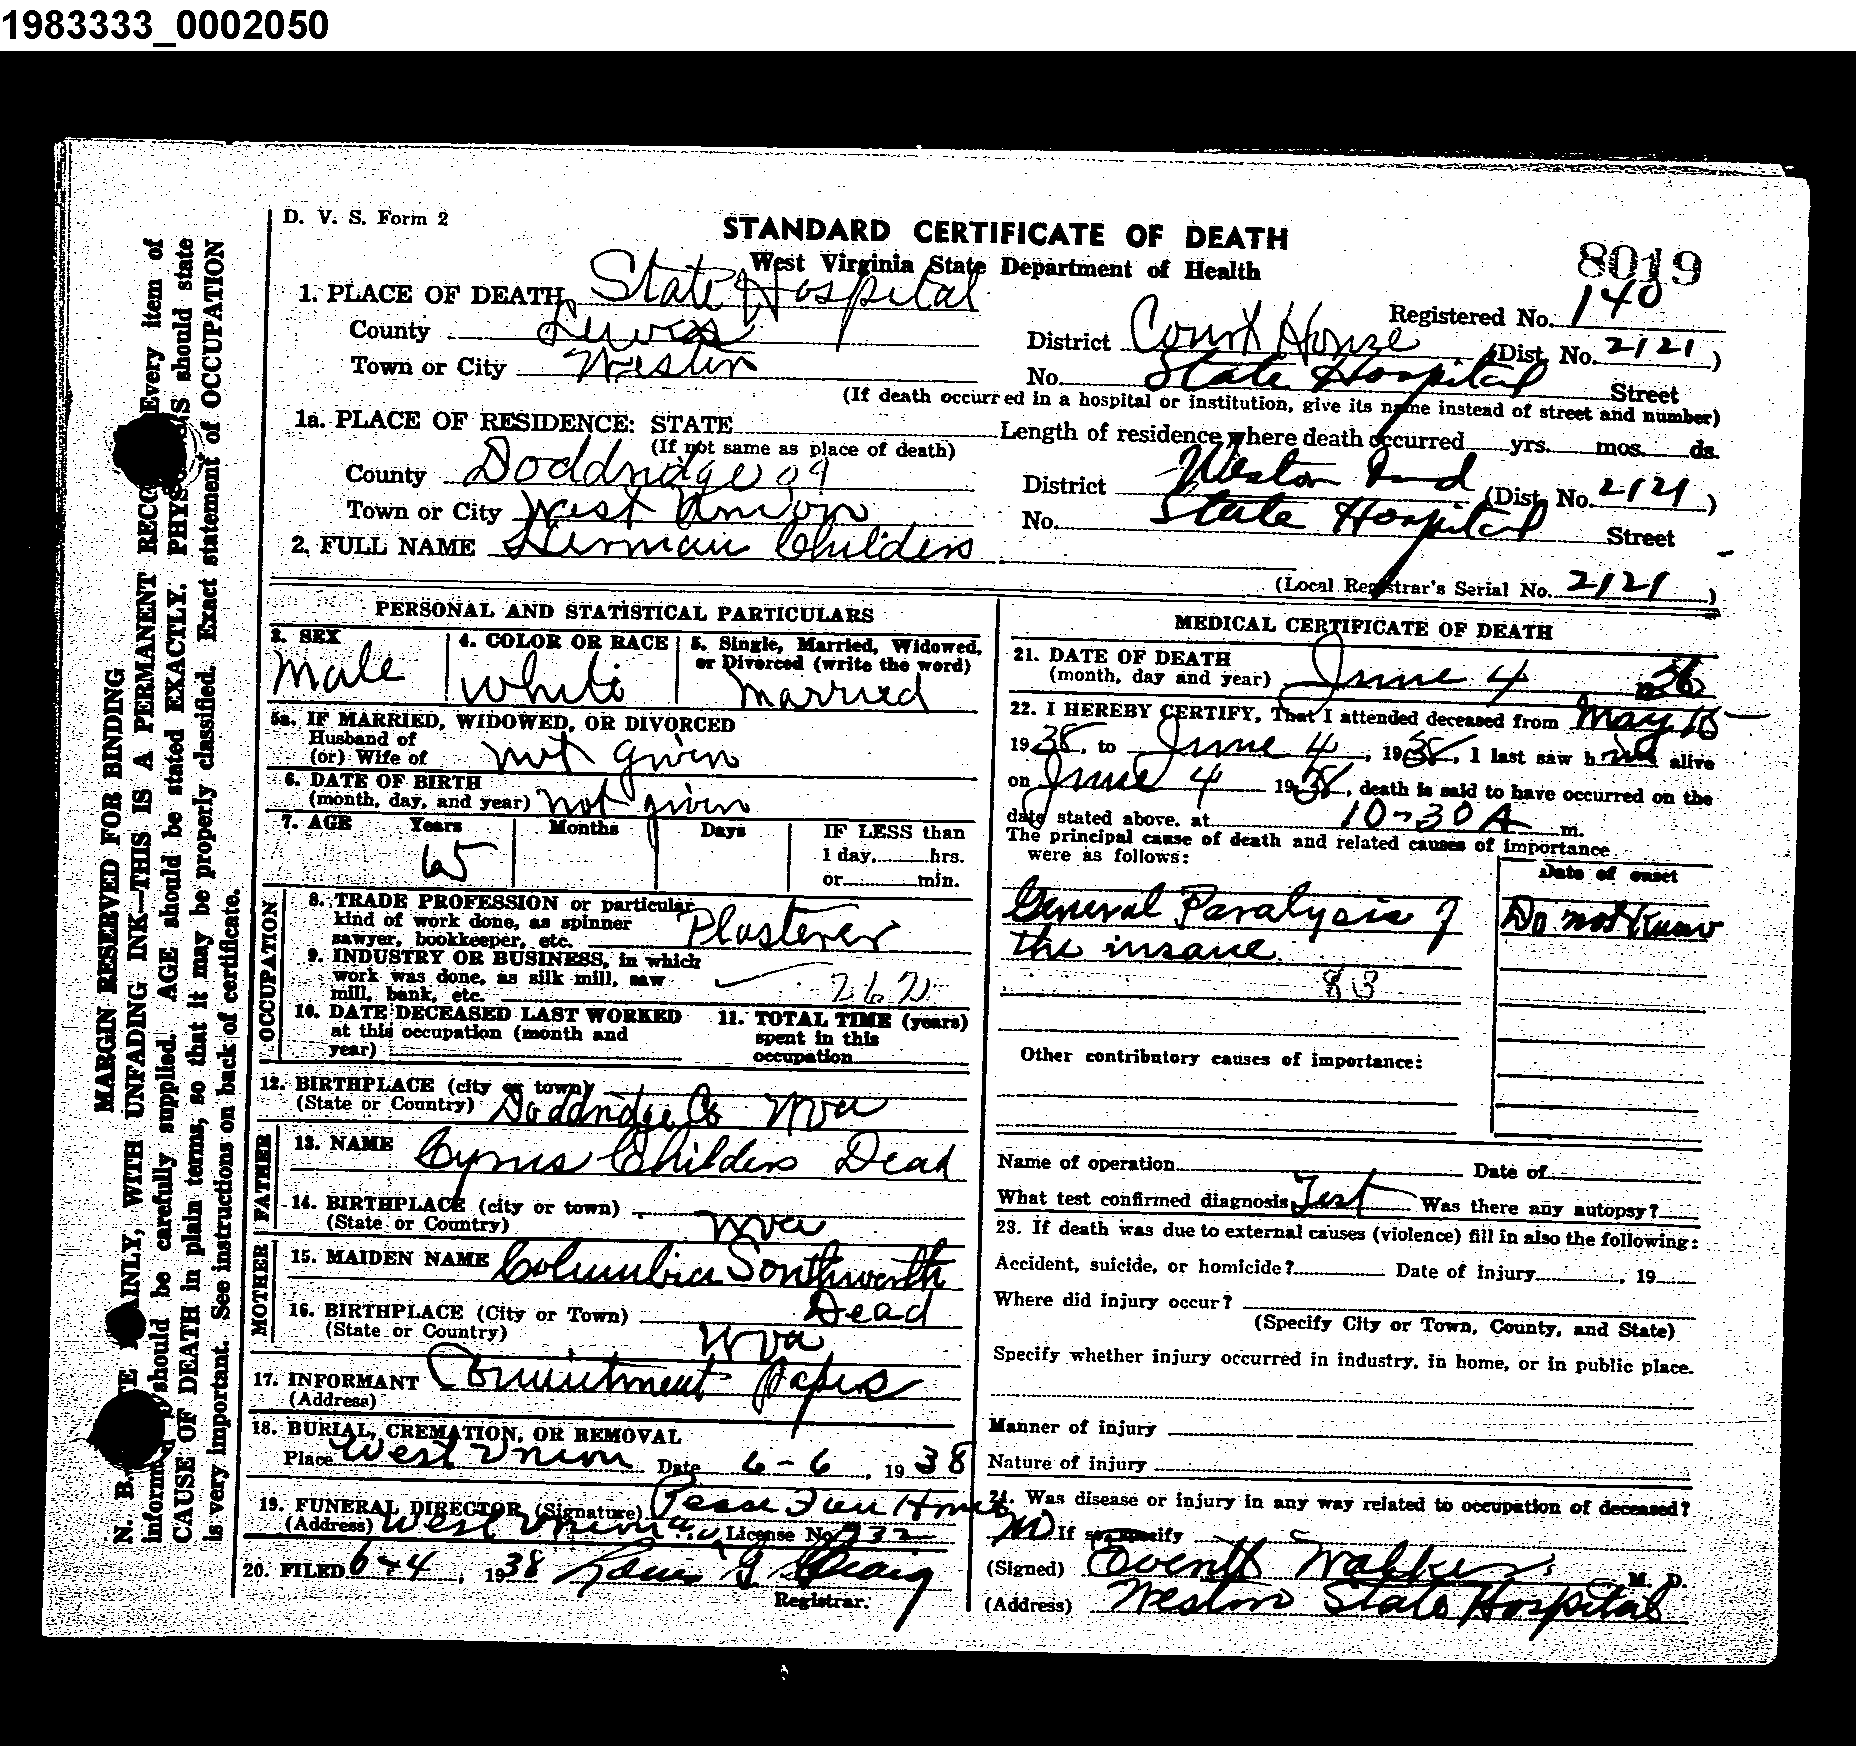 1983333_0002050
D. V. S. Form 2
STANDARD CERTIFICATE OF DEATH
West Virginia State Department of Health
8019
1. PLACE OF DEATH State Hospital
Registered No. 140
County Lewis
District Court House (Dist. No. 2121)
Town or City Weston
No. State Hospital Street
(If death occurred in a hospital or institution, give its name instead of street and number)
1a. PLACE OF RESIDENCE: STATE
(If not same as place of death)
Length of residence where death occurred yrs. mos. ds.
County Doddridge 09
District Weston Ind (Dist. No. 2121)
Town or City West Union
No. State Hospital Street
2. FULL NAME Herman Childers
(Local Registrar's Serial No. 2121)
PERSONAL AND STATISTICAL PARTICULARS
3. SEX
Male
4. COLOR OR RACE
White
5. Single, Married, Widowed,
or Divorced (write the word)
Married
5a. IF MARRIED, WIDOWED, OR DIVORCED
Husband of
(or) Wife of not given
6. DATE OF BIRTH
(month, day, and year) not given
7. AGE Years Months Days IF LESS than
1 day, hrs.
or min.
65
OCCUPATION
8. TRADE PROFESSION or particular
kind of work done, as spinner
sawyer, bookkeeper, etc. Plasterer
9. INDUSTRY OR BUSINESS, in which
work was done, as silk mill, saw
mill, bank, etc. 262
10. DATE DECEASED LAST WORKED
at this occupation (month and
year)
11. TOTAL TIME (years)
spent in this
occupation
12. BIRTHPLACE (city or town)
(State or Country) Doddridge Co Wva
FATHER
13. NAME Cyrus Childers Dead
14. BIRTHPLACE (city or town)
(State or Country) Wva
MOTHER
15. MAIDEN NAME Columbia Southworth
Dead
16. BIRTHPLACE (City or Town)
(State or Country) Wva
17. INFORMANT Commitment Papers
(Address)
18. BURIAL, CREMATION, OR REMOVAL
Place West Union Date 6-6, 1938
19. FUNERAL DIRECTOR (Signature)
(Address) West Union License No. 932
20. FILED 6-4, 1938
Registrar.
MEDICAL CERTIFICATE OF DEATH
21. DATE OF DEATH
(month, day and year) June 4
22. I HEREBY CERTIFY, That I attended deceased from May
1938, to June 4, 1938, I last saw h alive
on June 4 1938, death is said to have occurred on the
date stated above, at 10-30 A m.
The principal cause of death and related causes of importance
were as follows:
Date of onset
General Paralysis of
the insane
Do not Know
83
Other contributory causes of importance:
Name of operation Date of
What test confirmed diagnosis Test Was there any autopsy?
23. If death was due to external causes (violence) fill in also the following:
Accident, suicide, or homicide? Date of injury , 19
Where did injury occur?
(Specify City or Town, County, and State)
Specify whether injury occurred in industry, in home, or in public place.
Manner of injury
Nature of injury
24. Was disease or injury in any way related to occupation of deceased?
No If so specify
(Signed) Everett Walker M. D.
(Address) Weston State Hospital
MARGIN RESERVED FOR BINDING
AINLY, WITH UNFADING INK—THIS IS A PERMANENT RECO Every item of
should be carefully supplied. AGE should be stated EXACTLY. PHYS should state
CAUSE OF DEATH in plain terms, so that it may be properly classified. Exact statement of OCCUPATION
is very important. See instructions on back of certificate.